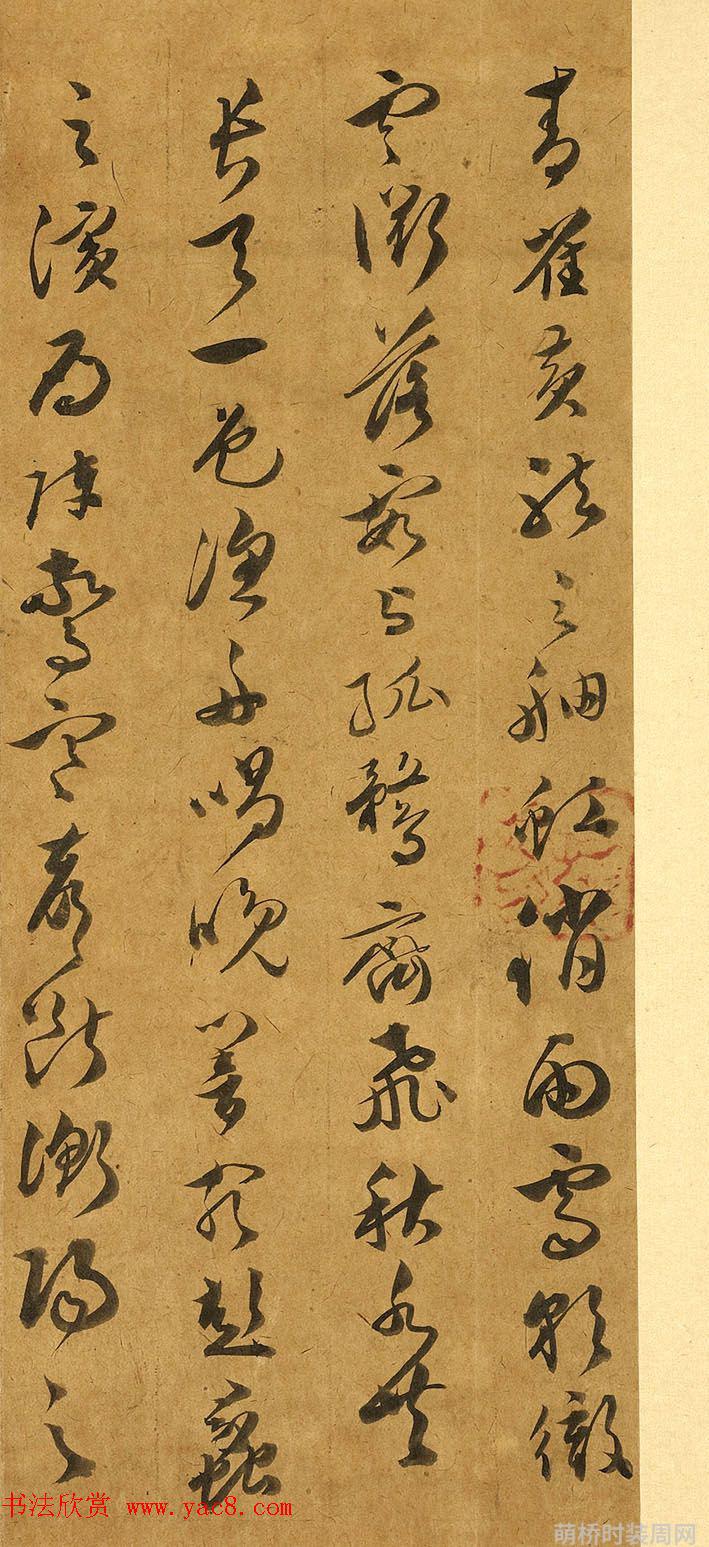 青雀黃龍之舳虹消雨霽彩徹
雲衢落霞与孤鶩齊飛秋水共
長天一色漁舟唱晚響窮彭蠡
之濱鴈陣驚寒聲斷衡陽之
书法欣赏 www.yac8.com
萌桥时装周网